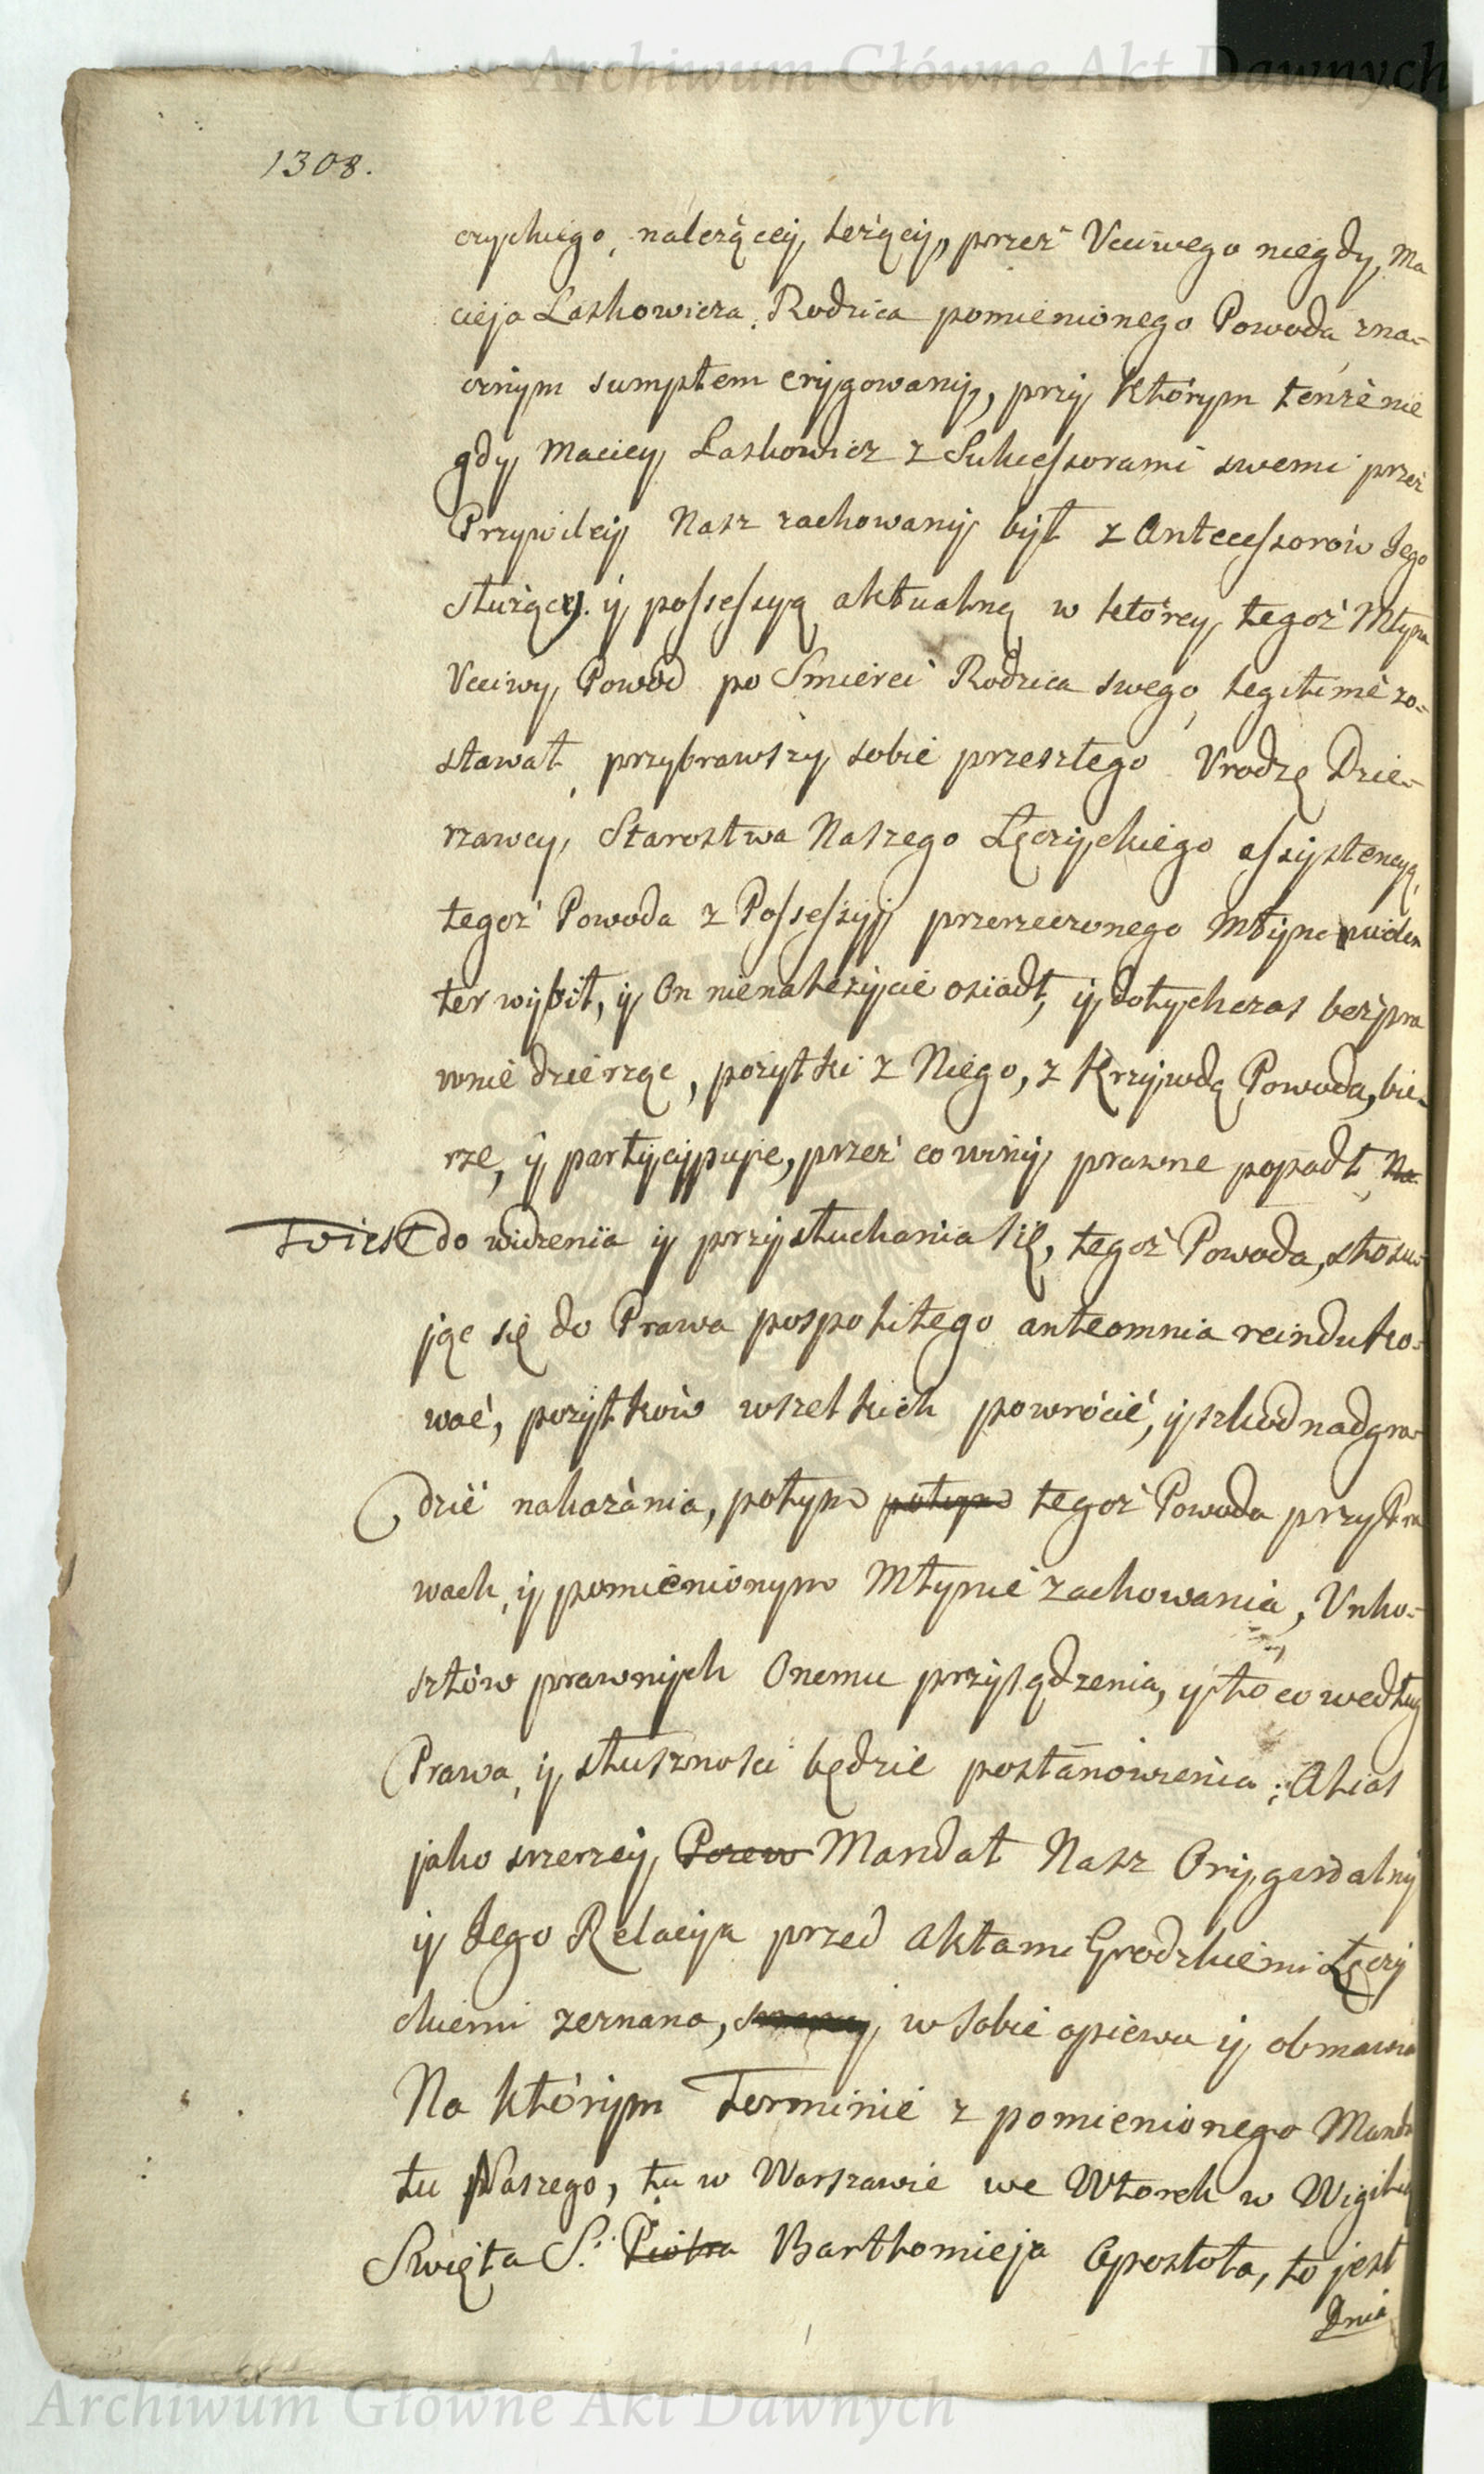 Archiwum Główne Akt Dawnych
1308.
czyckiego, należącey, leżący, przez Vcciwego niegdy, Ma
cieja Laskowicza, Rodzica pomienionego Powoda, zna-
cznym sumptem erygowany, przy którym tenże nie
gdy Maciey Laskowicz z Sukcessorami swemi przez
Przywiley Nasz zachowany był z Antecessorów Jego
służący. y possessyą aktualną w którey tegoż Młyna
Vcciwy Powód po Smierci Rodzica swego, legitime zo-
stawał, przybrawszy sobie przeszłego Vrodzę Dzie-
rzawcy, Starostwa Naszego Łęczyckiego assystencyą,
tegoż Powoda z Possessyi przerzeczonego Młyna
ter wybił, y On nienależycie osiadł, y dotychczas bezpra
wnie dzierząc, pożytki z Niego, z Krzywdą Powoda, bie-
rze, y partycypuje, przez co winy prawne popadł, Na
Twiest do widzenia y przysłuchania się, tegoż Powoda, stosu-
jąc się do Prawa pospolitego anteomnia reinduko-
wać, pożytków wszelkich powrócić, y szkod nadgro-
dzić nakazania, potym potym tegoż Powoda przy Pra
wach, y pomienionym Młynie zachowania, Vnko-
sztów prawnych Onemu przysądzenia, y to co według
Prawa, y słuszności będzie postanowienia; Alias
jako szerzey, Pozew Mandat Nasz Oryginalny
y Jego Relacya przed Aktami Grodzkiemi Łęczy
ckiemi zeznana, w sobie opiewa y obmawia
Na którym Terminie z pomienionego Manda
tu Naszego, tu w Warszawie we Wtorek w Wigilią
Swięta S. Piotra Bartłomieja Apostoła, to jest
Dnia
Archiwum Główne Akt Dawnych